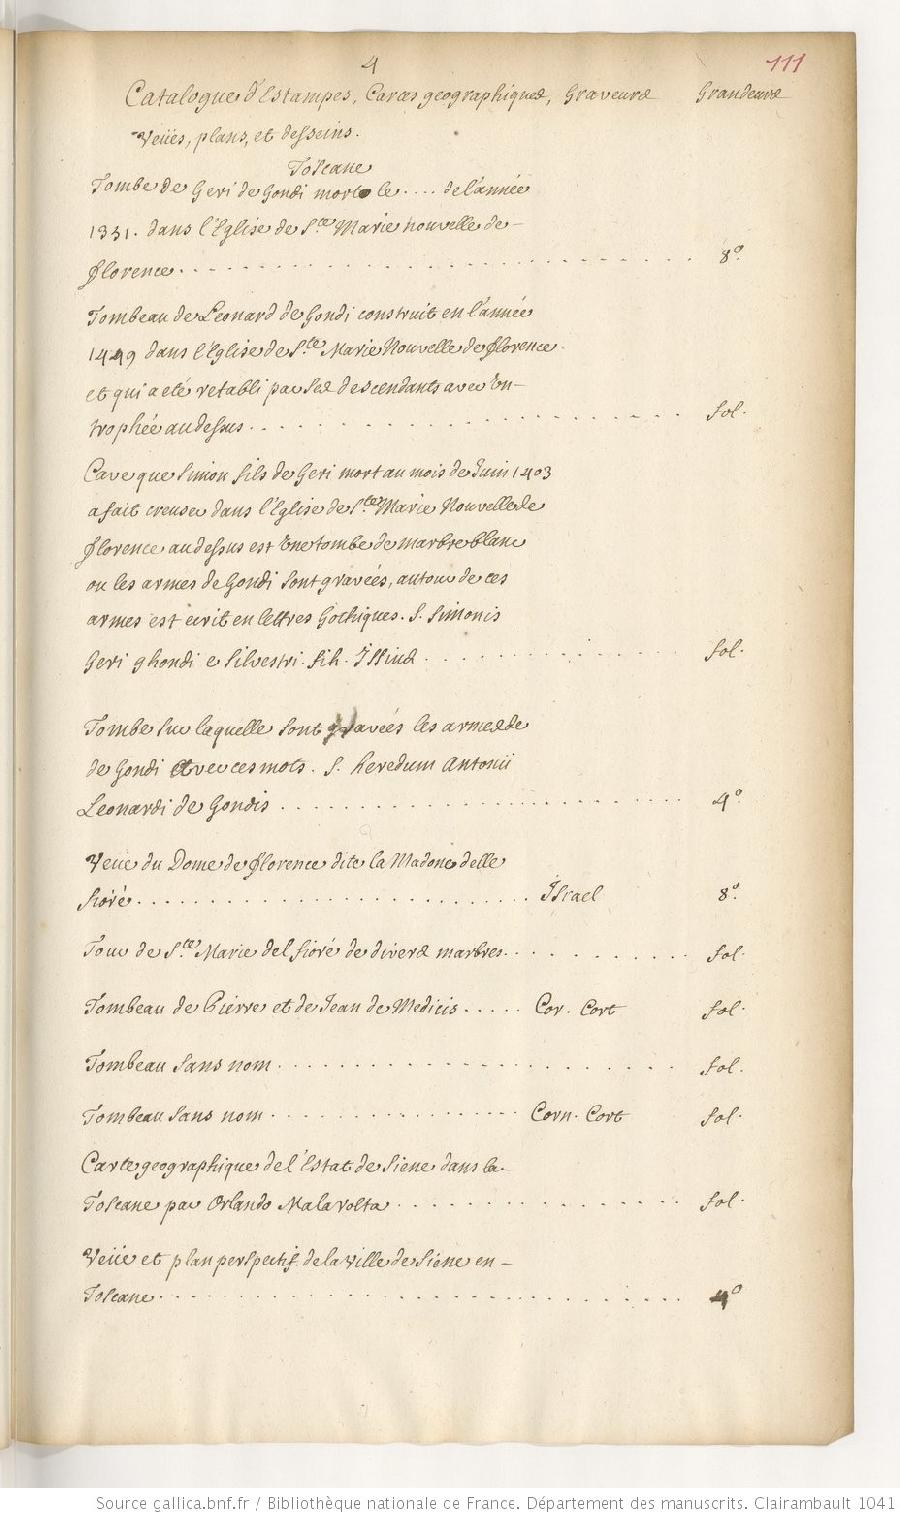 4
111
Catalogue d'Estampes, Cartes geographiques, Graveurs Grandeurs
Veües, plans, et desseins.
Toscane
Tombe de Geri de Gondi mort le .... de l'année
1331. dans l'Eglise de Ste Marie nouvelle de
florence 8º.
Tombeau de Leonard de Gondi construit en l'année
1449 dans l'Eglise de Ste Marie Nouvelle de florence
et qui a eté retabli par ses descendants avec Un
trophée au dessus fol.
Cave que Simon fils de Geri mort au mois de Juin 1403
a fait creuser dans l'Eglise de Ste Marie Nouvelle de
florence au dessus est Une tombe de marbre blanc
ou les armes de Gondi sont gravées, autour de ces
armes est ecrit en lettres Gothiques. S. Simonis
Geri ghondi e Silvestri fil. fol.
Tombe sur laquelle sont gravées les armes de
de Gondi avec ces mots. S. heredum Antonii
Leonardi de Gondis 4º.
Veue du Dome de florence dite la Madone delle
fioré Israel 8º.
Tour de Ste Marie del fioré de divers marbres fol.
Tombeau de Pierre et de Jean de Medicis Cor. Cort fol.
Tombeau sans nom fol.
Tombeau sans nom Corn. Cort fol.
Carte geographique de l'Estat de Siene dans la
Toscane par Orlando Malavolta fol.
Veüe et plan perspectif de la Ville de Siéne en
Toscane 4º
Source gallica.bnf.fr / Bibliothèque nationale de France. Département des manuscrits. Clairambault 1041